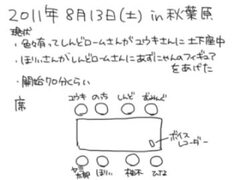 2011年 8月13日(土) in 秋葉原
現状
・色々有ってしんどロームさんがユウキさんに土下座中
・ほりぃさんがしんどロームさんにあずにゃんのフィギュアをあげた
・開始70分くらい
席
ユウキ のち しんど
ボイスレコーダー
ほりぃ 柚木